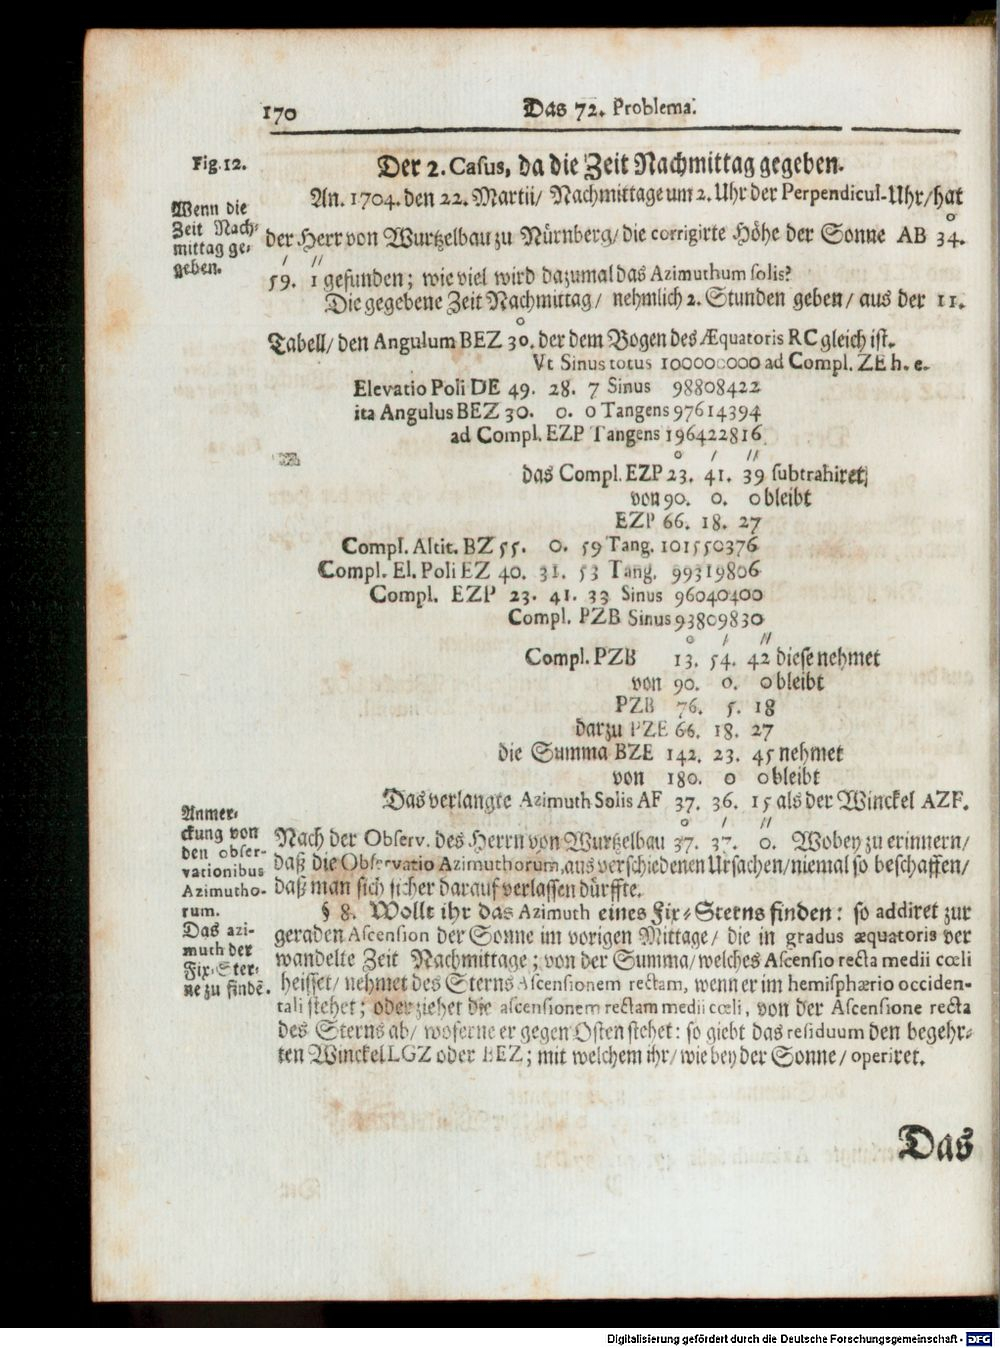 170
Das 72. Problema.
Fig. 12.
Der 2. Casus, da die Zeit Nachmittag gegeben.
Wenn die
Zeit Nach-
mittag ge-
geben.
An. 1704. den 22. Martii/ Nachmittage um 2. Uhr der Perpendicul-Uhr/ hat
o
der Herr von Wurtzelbau zu Nürnberg/ die corrigirte Höhe der Sonne AB 34.
/ //
59. 1 gefunden; wie viel wird dazumal das Azimuthum solis?
Die gegebene Zeit Nachmittag/ nehmlich 2. Stunden geben/ aus der 11.
o
Tabell/ den Angulum BEZ 30. der dem Bogen des Æquatoris RC gleich ist.
Vt Sinus totus 100000000 ad Compl. ZE h. e.
Elevatio Poli DE 49. 28. 7 Sinus 98808422
ita Angulus BEZ 30. 0. 0 Tangens 97614394
ad Compl. EZP Tangens 196422816
o / //
das Compl. EZP 23. 41. 39 subtrahiret
von 90. 0. 0 bleibt
EZP 66. 18. 27
Compl. Altit. BZ 55. 0. 59 Tang. 101550376
Compl. El. Poli EZ 40. 31. 53 Tang. 99319806
Compl. EZP 23. 41. 33 Sinus 96040400
Compl. PZB Sinus 93809830
o / //
Compl. PZB 13. 54. 42 diese nehmet
von 90. 0. 0 bleibt
PZB 76. 5. 18
darzu PZE 66. 18. 27
die Summa BZE 142. 23. 45 nehmet
von 180. 0 0 bleibt
Das verlangte Azimuth Solis AF 37. 36. 15 als der Winckel AZF.
Anmer-
ckung von
den obser-
vationibus
Azimutho-
rum.
o / //
Nach der Observ. des Herrn von Wurtzelbau 37. 37. 0. Wobey zu erinnern/
daß die Observatio Azimuthorum, aus verschiedenen Ursachen/ niemal so beschaffen/
daß man sich sicher darauf verlassen dürffte.
Das azi-
muth der
Fix-Ster-
ne zu findē.
§ 8. Wollt ihr das Azimuth eines Fix-Sterns finden: so addiret zur
geraden Ascension der Sonne im vorigen Mittage/ die in gradus æquatoris ver
wandelte Zeit Nachmittage; von der Summa/ welches Ascensio recta medii cœli
heisset/ nehmet des Sterns Ascensionem rectam, wenn er im hemisphærio occiden-
tali stehet; oder ziehet die ascensionem rectam medii cœli, von der Ascensione recta
des Sterns ab/ woferne er gegen Osten stehet: so giebt das residuum den begehr-
ten Winckel LGZ oder BEZ; mit welchem ihr/ wie bey der Sonne/ operiret.
Das
Digitalisierung gefördert durch die Deutsche Forschungsgemeinschaft - DFG